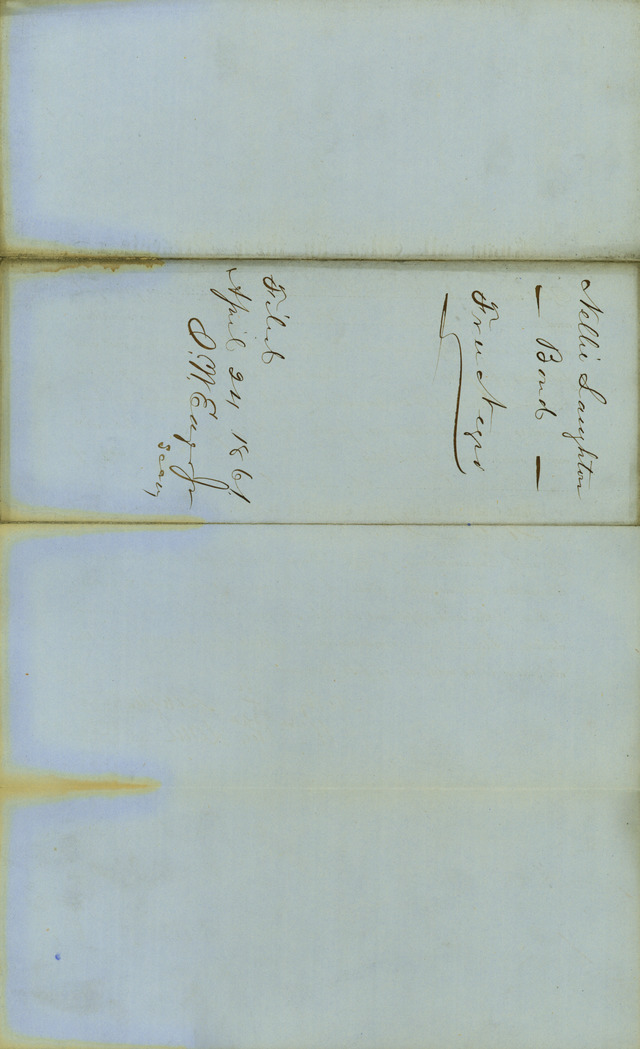 Nellie Laughton
— Bond —
Free Negro
Filed
April 24 1861
S. W. Eager Jr